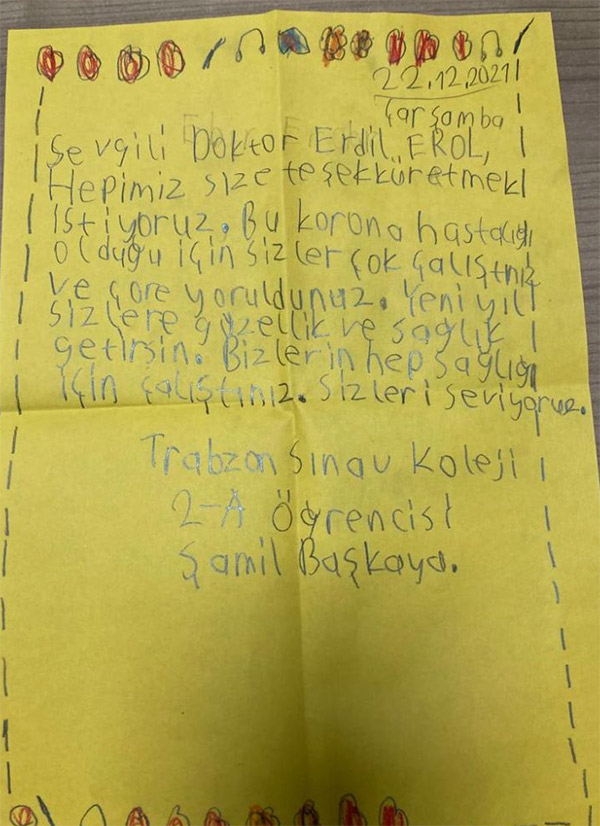 22.12.2021
Çarşamba
Sevgili Doktor Erdil EROL,
Hepimiz size teşekküretmek
istiyoruz. Bu korona hastalığı
olduğu için sizler çok çalıştınız
ve çore yoruldunuz. Yeni yıl
sizlere güzellik ve sağlık
getirsin. Bizlerin hep sağlığı
için çalıştınız. Sizleri seviyoruz.
Trabzon Sınav Koleji
2-A Öğrencisi
Şamil Başkaya.